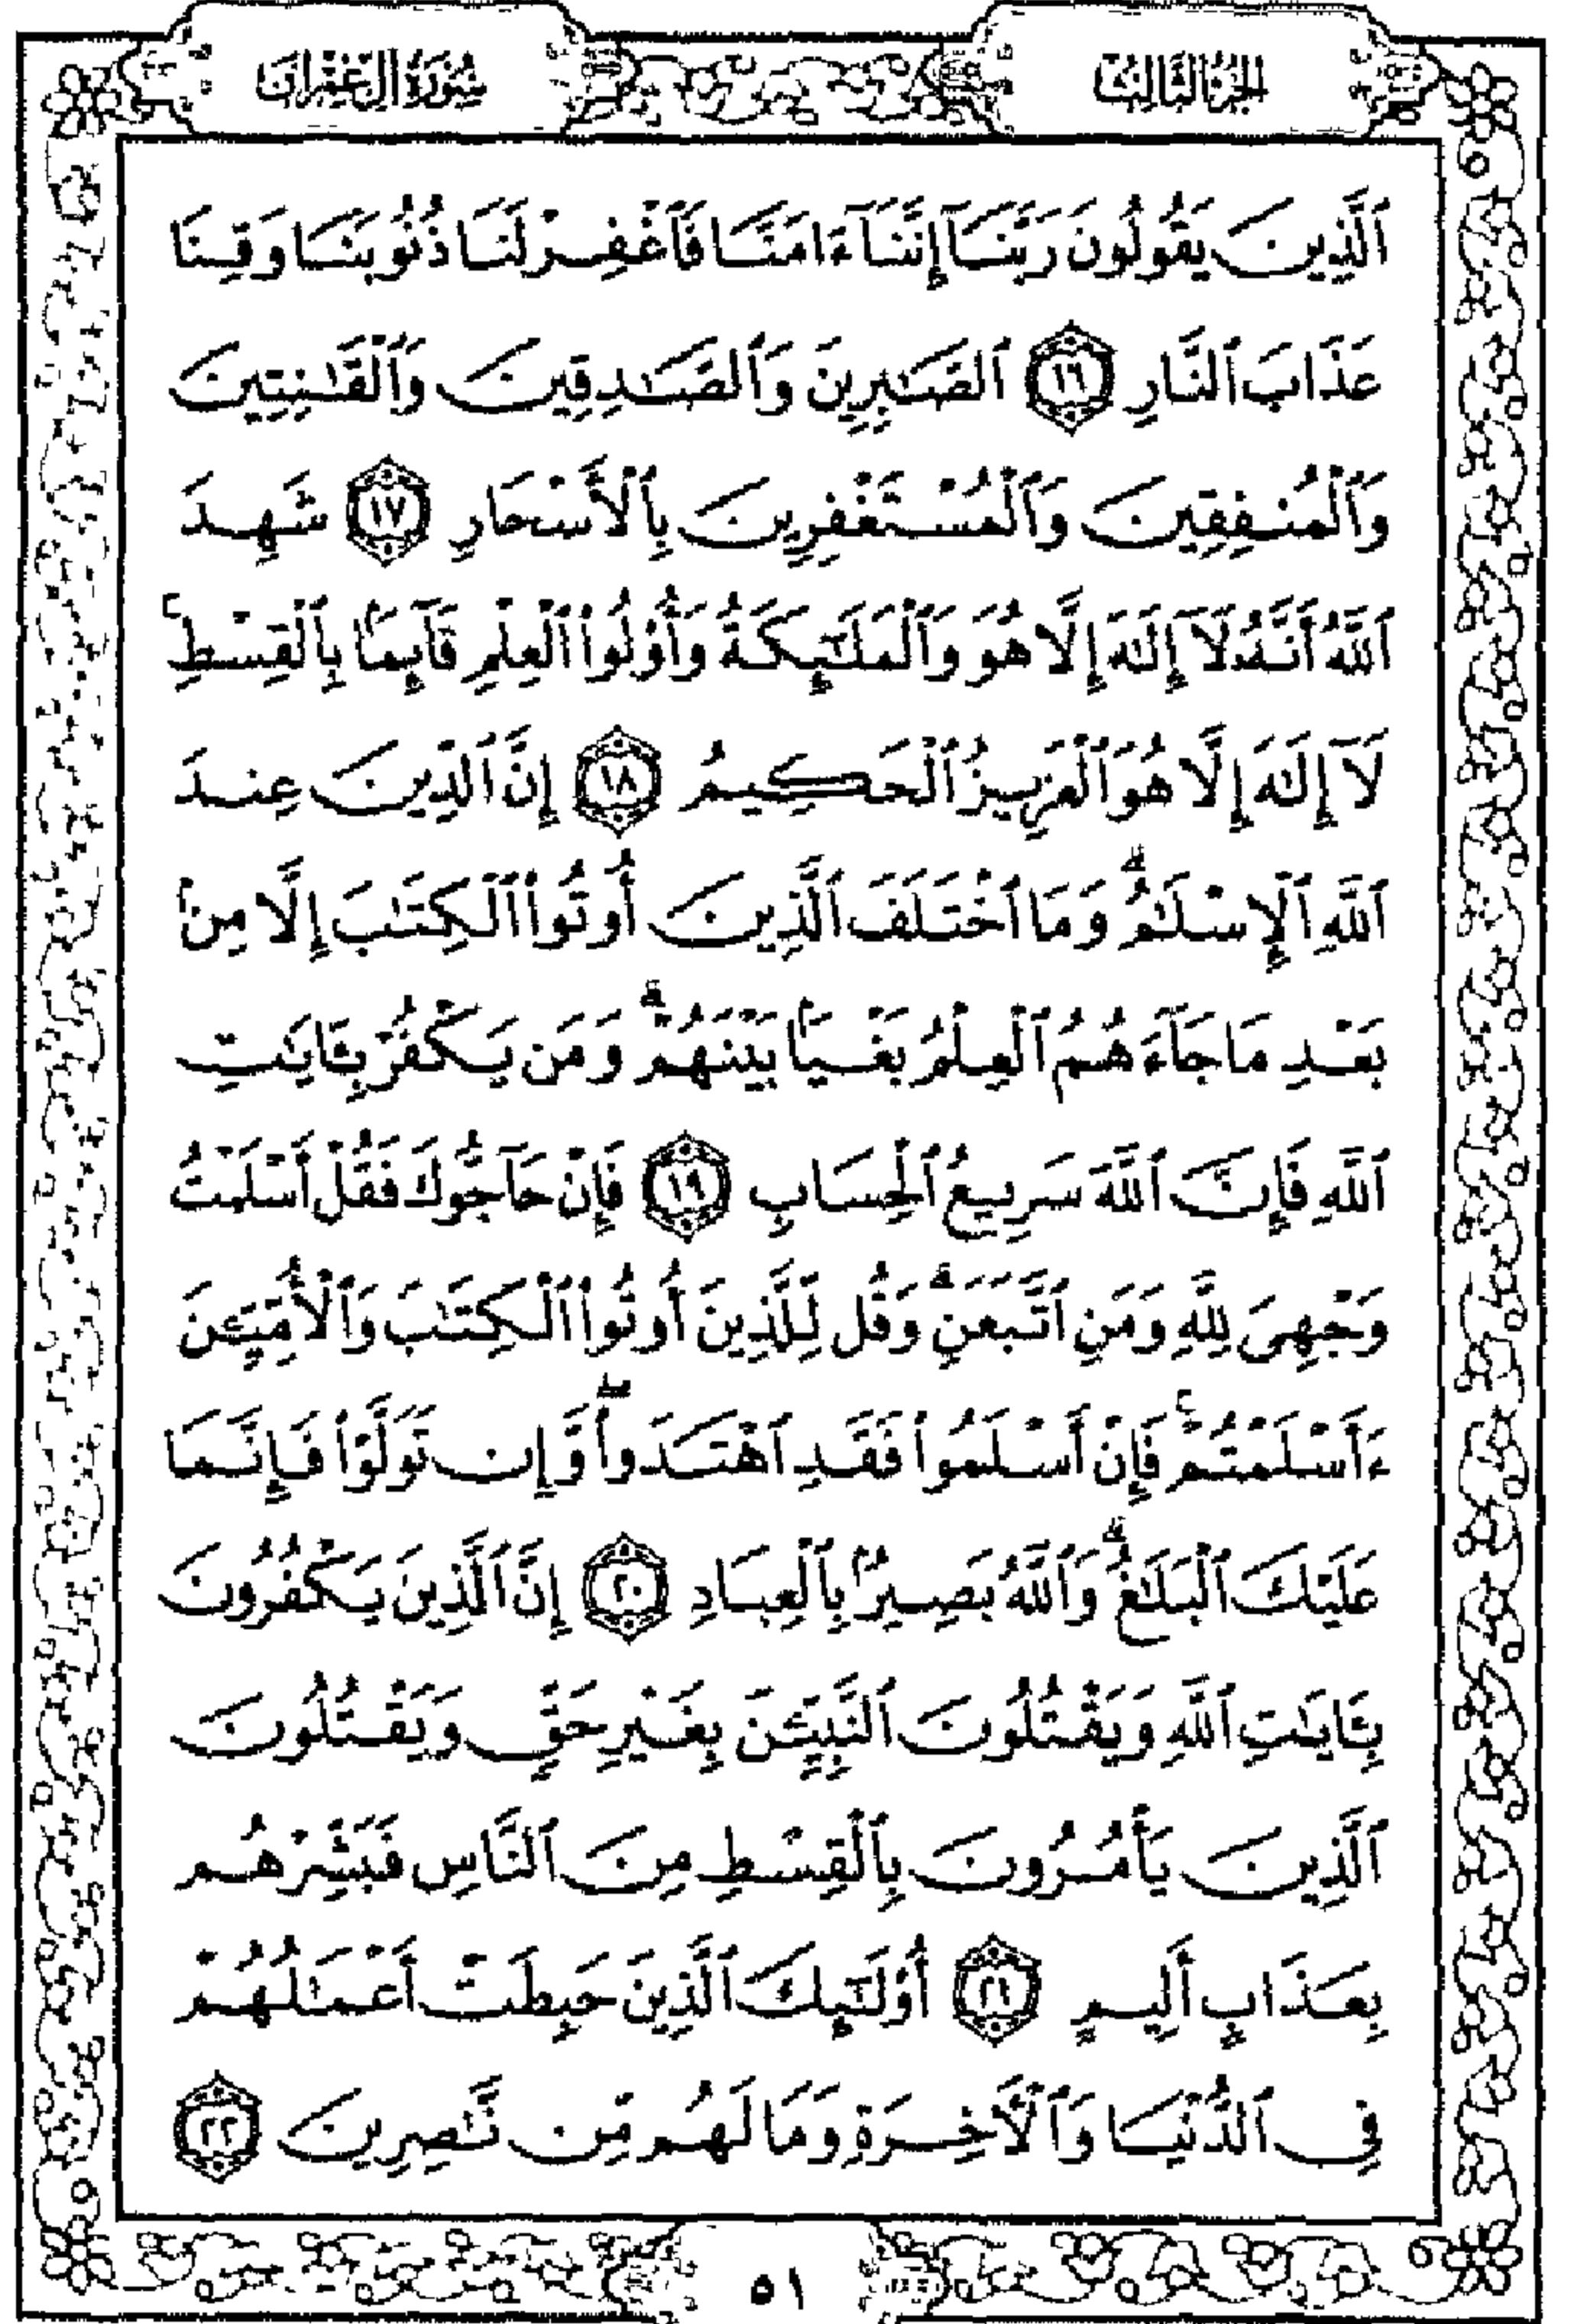 الجزء الثالث
سورة آل عمران
ٱلَّذِينَ يَقُولُونَ رَبَّنَآ إِنَّنَآ ءَامَنَّا فَٱغْفِرْ لَنَا ذُنُوبَنَا وَقِنَا
عَذَابَ ٱلنَّارِ ١٦ ٱلصَّٰبِرِينَ وَٱلصَّٰدِقِينَ وَٱلْقَٰنِتِينَ
وَٱلْمُنفِقِينَ وَٱلْمُسْتَغْفِرِينَ بِٱلْأَسْحَارِ ١٧ شَهِدَ
ٱللَّهُ أَنَّهُۥ لَآ إِلَٰهَ إِلَّا هُوَ وَٱلْمَلَٰٓئِكَةُ وَأُو۟لُوا۟ ٱلْعِلْمِ قَآئِمًۢا بِٱلْقِسْطِ ۚ
لَآ إِلَٰهَ إِلَّا هُوَ ٱلْعَزِيزُ ٱلْحَكِيمُ ١٨ إِنَّ ٱلدِّينَ عِندَ
ٱللَّهِ ٱلْإِسْلَٰمُ ۗ وَمَا ٱخْتَلَفَ ٱلَّذِينَ أُوتُوا۟ ٱلْكِتَٰبَ إِلَّا مِنۢ
بَعْدِ مَا جَآءَهُمُ ٱلْعِلْمُ بَغْيًۢا بَيْنَهُمْ ۗ وَمَن يَكْفُرْ بِـَٔايَٰتِ
ٱللَّهِ فَإِنَّ ٱللَّهَ سَرِيعُ ٱلْحِسَابِ ١٩ فَإِنْ حَآجُّوكَ فَقُلْ أَسْلَمْتُ
وَجْهِىَ لِلَّهِ وَمَنِ ٱتَّبَعَنِ ۗ وَقُل لِّلَّذِينَ أُوتُوا۟ ٱلْكِتَٰبَ وَٱلْأُمِّيِّـۧنَ
ءَأَسْلَمْتُمْ ۚ فَإِنْ أَسْلَمُوا۟ فَقَدِ ٱهْتَدَوا۟ ۖ وَّإِن تَوَلَّوْا۟ فَإِنَّمَا
عَلَيْكَ ٱلْبَلَٰغُ ۗ وَٱللَّهُ بَصِيرٌۢ بِٱلْعِبَادِ ٢٠ إِنَّ ٱلَّذِينَ يَكْفُرُونَ
بِـَٔايَٰتِ ٱللَّهِ وَيَقْتُلُونَ ٱلنَّبِيِّـۧنَ بِغَيْرِ حَقٍّ وَيَقْتُلُونَ
ٱلَّذِينَ يَأْمُرُونَ بِٱلْقِسْطِ مِنَ ٱلنَّاسِ فَبَشِّرْهُم
بِعَذَابٍ أَلِيمٍ ٢١ أُو۟لَٰٓئِكَ ٱلَّذِينَ حَبِطَتْ أَعْمَٰلُهُمْ
فِى ٱلدُّنْيَا وَٱلْـَٔاخِرَةِ وَمَا لَهُم مِّن نَّٰصِرِينَ ٢٢
٥١